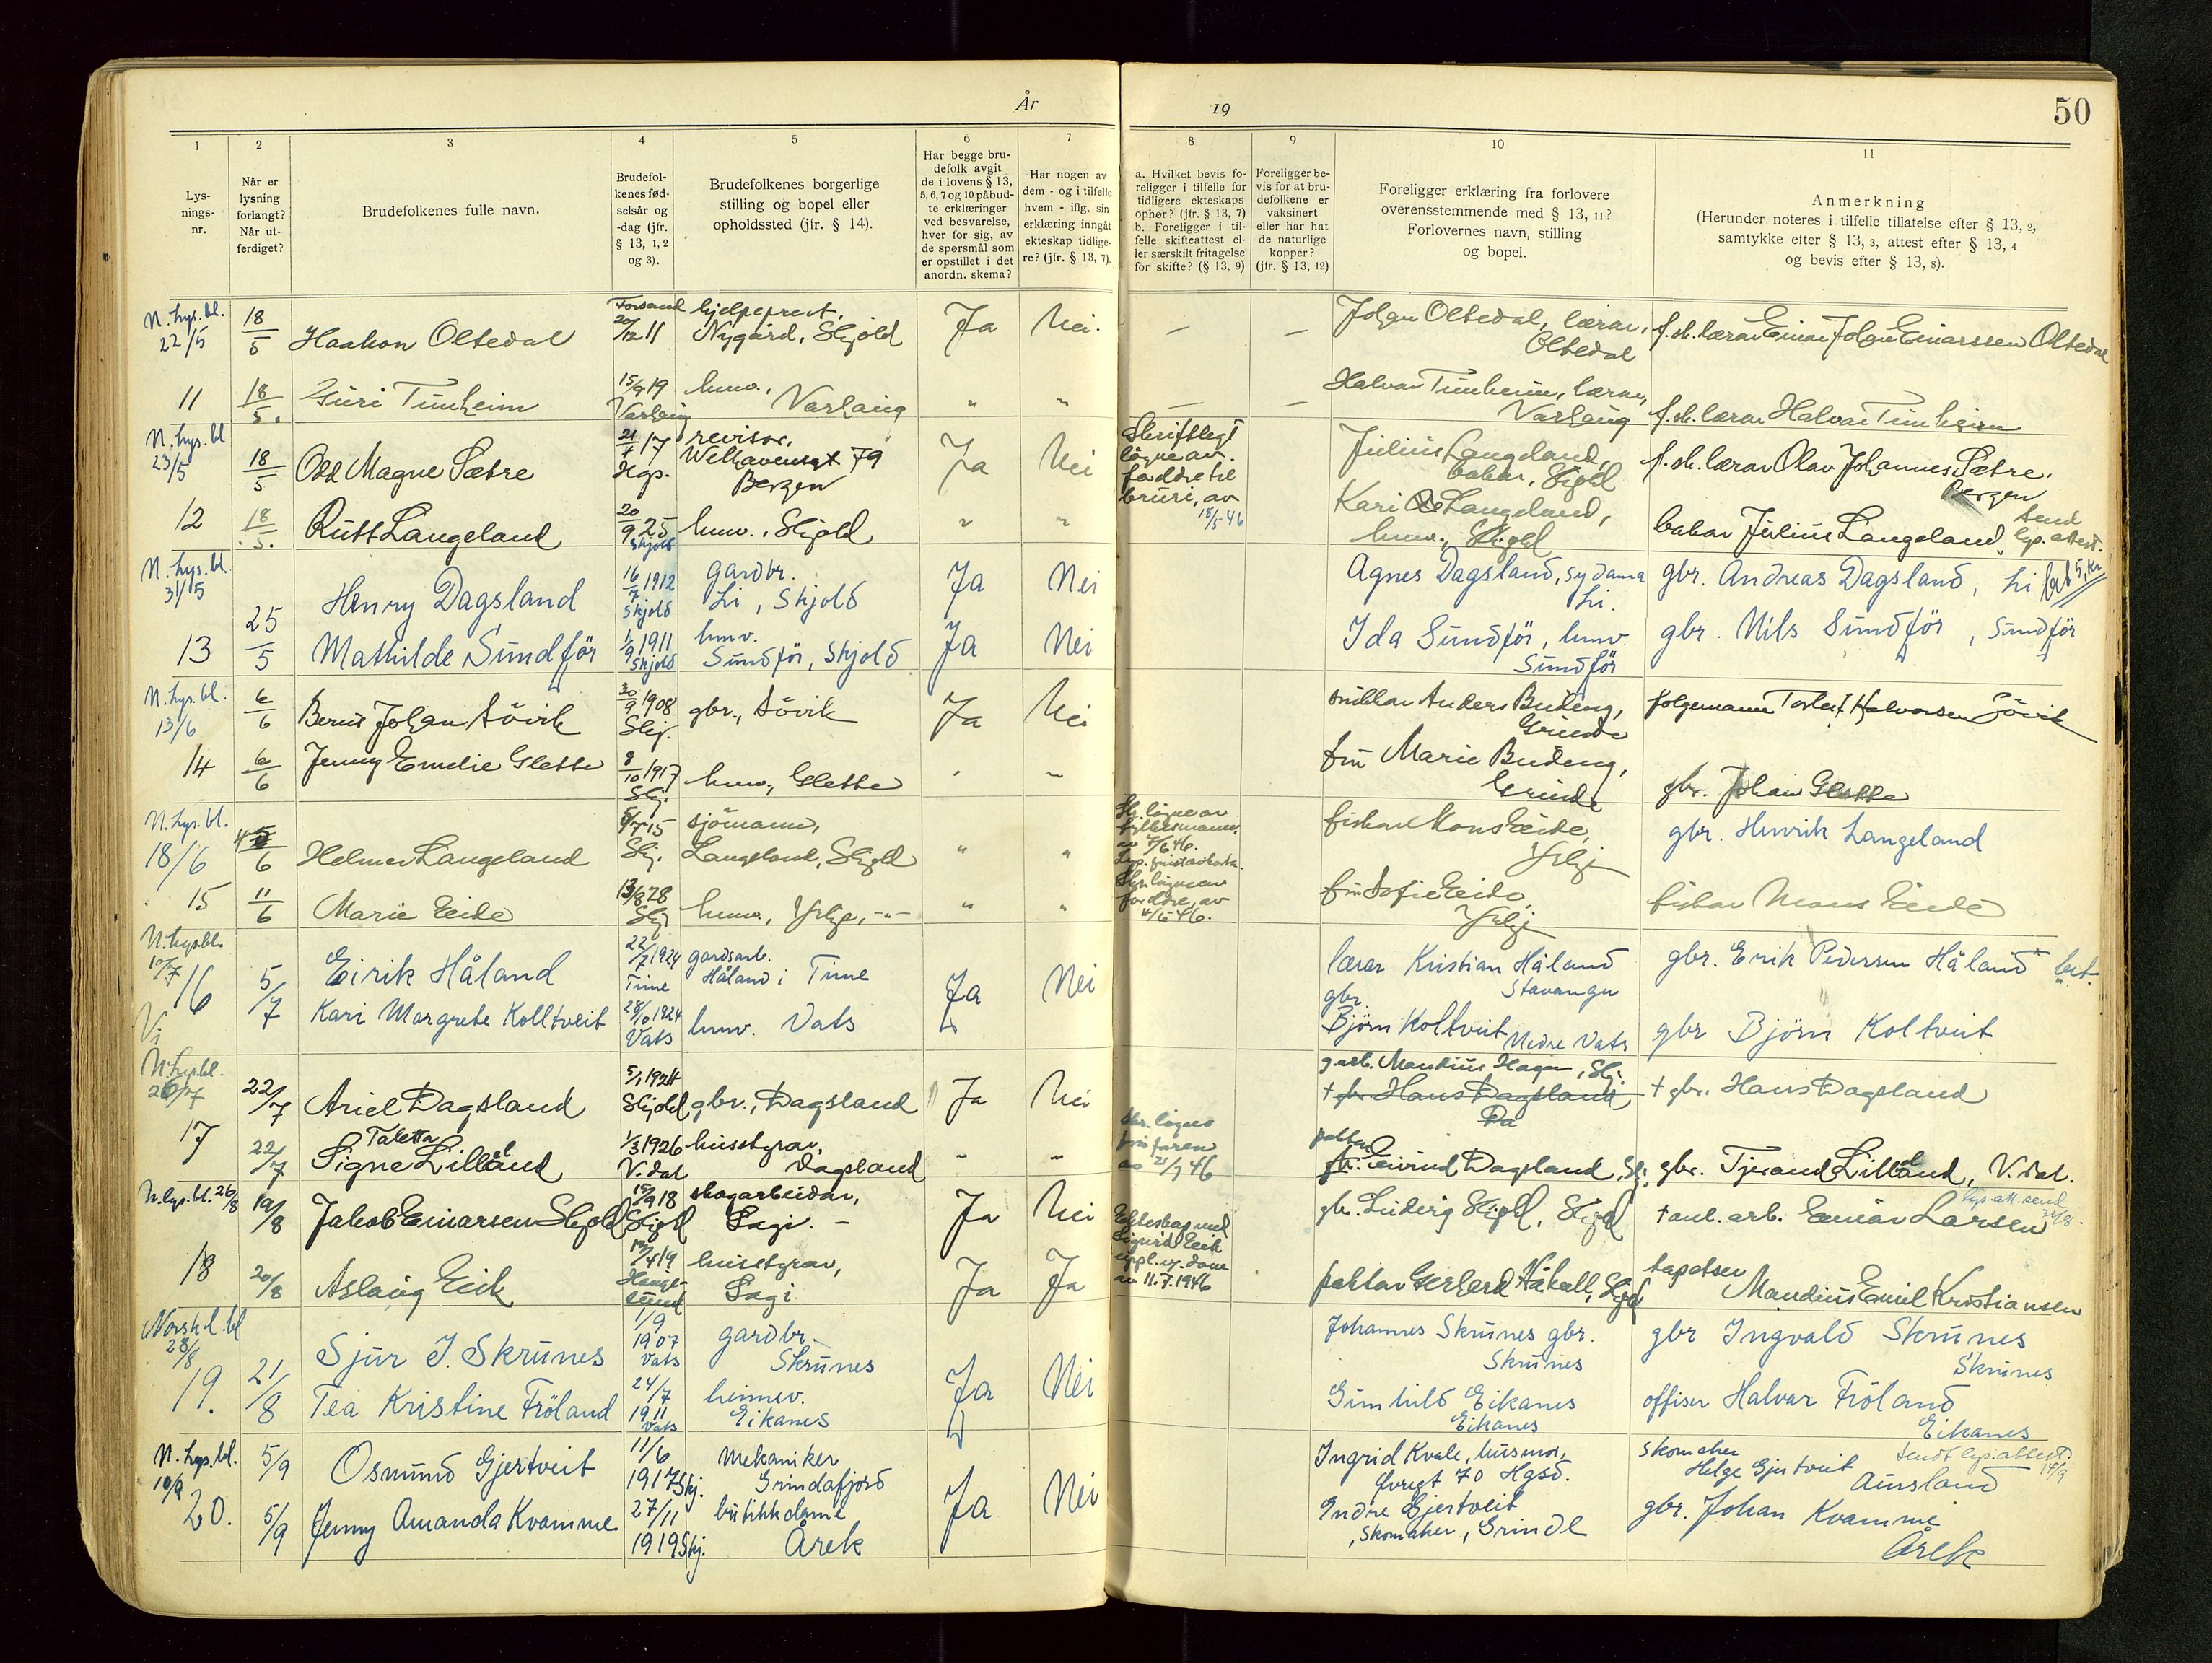 År 19
50
1
2
3
4
5
6
7
8
9
10
11
Lysnings-nr.
Når er lysning forlangt? Når utferdiget?
Brudefolkenes fulle navn.
Brudefolkenes fødselsår og -dag (jfr. § 13, 1, 2 og 3).
Brudefolkenes borgerlige stilling og bopel eller opholdssted (jfr. § 14).
Har begge brudefolk avgit de i lovens § 13, 5, 6, 7 og 10 påbudte erklæringer ved besvarelse, hver for sig, av de spørsmål som er opstillet i det anordn. skema?
Har nogen av dem - og i tilfelle hvem - iflg. sin erklæring inngått ekteskap tidligere? (jfr. § 13, 7).
a. Hvilket bevis foreligger i tilfelle for tidligere ekteskaps ophør? (jfr. § 13, 7) b. Foreligger i tilfelle skifteattest eller særskilt fritagelse for skifte? (§ 13, 9)
Foreligger bevis for at brudefolkene er vaksinert eller har hat de naturlige kopper? (jfr. § 13, 12)
Foreligger erklæring fra forlovere overensstemmende med § 13, 11? Forlovernes navn, stilling og bopel.
Anmerkning (Herunder noteres i tilfelle tillatelse efter § 13, 2, samtykke efter § 13, 3, attest efter § 13, 4 og bevis efter § 13, 8).
N. lys. bl. 22/5
18/5 Haakon Oltedal Forsand 20/12 11 hjelpeprest, Nygård, Skjold Ja Nei. — — Johan Oltedal, lærar, Oltedal f. sk. lærar Einar Johan Einarssen Oltedal
11 18/5. Guri Tunheim 15/9 19 Varhaug hmv., Varhaug " " — — Halvar Tunheim, lærar, Varhaug f. sk. lærar Halvar Tunheim
N. lys. bl 23/5
18/5 Odd Magne Sætre 21/7 17 Hgs. revisor, Welhavensgt 79 Bergen Ja Nei Skriftlegt løyve av foreldre til bruri, av 18/5 46 Julius Langeland, bakar, Skjold f. sk. lærar Olav Johannes Sætre. Bergen
12 18/5. Rutt Langeland 20/9 25 Skjold hmv., Skjold " " Kari Langeland, hmv., Skjold bakar Julius Langeland, send lys. attest.
N. lys. bl. 31/5
Henry Dagsland 16/7 1912 Skjold gardbr. Li, Skjold Ja Nei Agnes Dagsland, sydama Li. gbr. Andreas Dagsland, Li bet 5, kr
13 25/5 Mathilde Sundför 1/9 1911 Skjold hmv. Sundför, Skjold Ja Nei Ida Sundför, hmv. Sundför gbr. Nils Sundför, Sundför
N. lys. bl. 13/6
6/6 Berns Johan Sövik 30/9 1908 Skj. gbr., Sövik Ja Nei snikkar Anders Budeng, Grinde folgemann Torleif Halvorsen Sövik
14 6/6 Jenny Emelie Glette 8/10 1917 Skj. hmv., Glette " " fru Marie Budeng, Grinde gbr. Johan Glette
N. lys. bl. 18/6
Helmer Langeland 15 Skj. sjömann, Langeland, Skjold " " Sk. løyve av fylkesmann. fiskar Mons Eide, gbr. Henrik Langeland
15 11/6 Marie Eide 13/8 28 Skj hmv., -"- " " Skr. løyve av foreldre, av 4/6 46. fru Sofie Eide, fiskar Mons Eide
N. lys. bl. 10/7
16 5/7 Eirik Håland 22/7 1924 Time gardsarb. Håland i Time Ja Nei lærar Kristian Håland Stavanger gbr. Erik Pedersen Håland bet.
Kari Margrete Kolltveit 28/10 1924 Vats hmv. Vats gbr. Björn Koltveit Nedre Vats gbr Björn Koltveit
N. lys. bl. 26/7
22/7 Ariel Dagsland 5/1 1924 Skjold gbr., Dagsland Ja Nei g. arb. Mandius Hagen, Skj. † gbr. Hans Dagsland † gbr. Hans Dagsland
17 22/7 Signe Taletta Lilland 1/3 1926 V. dal husstyrar, Dagsland " " Skr. løyve frå faren av 21/7 46 paktar Eivind Dagsland, Skj. gbr. Tjerand Lilland, V. dal.
N. lys. bl. 26/8
19/8 Jakob Einarsen Skjold 15/9 18 Skjold skogarbeidar, Sagi. - Ja Nei gbr. Ludvig Skjold, Skjold † anl. arb. Einar Larsen lys. att. send
18 20/8 Aslaug Eik 19 Haugesund husstyrar, Sagi Ja Ja Ekteskap med Sigurd Eik oppl. v. dom av 11.7.1946 paktar Gerhard Håkoll, Skjold tapetser Mandius Emil Kristiansen
Norsk l. bl 28/8
Sjur I. Skrunes 1/9 1907 Vats gardbr. Skrunes Johannes Skrunes gbr. Skrunes gbr Ingvald Skrunes Skrunes
19. 21/8 Tea Kristine Fröland 24/7 1911 Vats heimev. Eikanes Ja Nei Gunhild Eikanes Eikanes offiser Halvar Fröland Eikanes
N. lys. bl. 10/9
5/9 Osmund Gjertveit 11/6 1917 Skj. mekaniker Grindafjord Ingrid Kvale, husmor, 70 Hgsd. skomaker Helge Gjertveit Aursland Sendt lys. attest. 14/9
20. 5/9 Jenny Amanda Kvamme 27/11 1919 Skj. butikkdame Årek Ja Nei Indre Gjertveit, skomaker, Grinde gbr. Johan Kvamme Årek